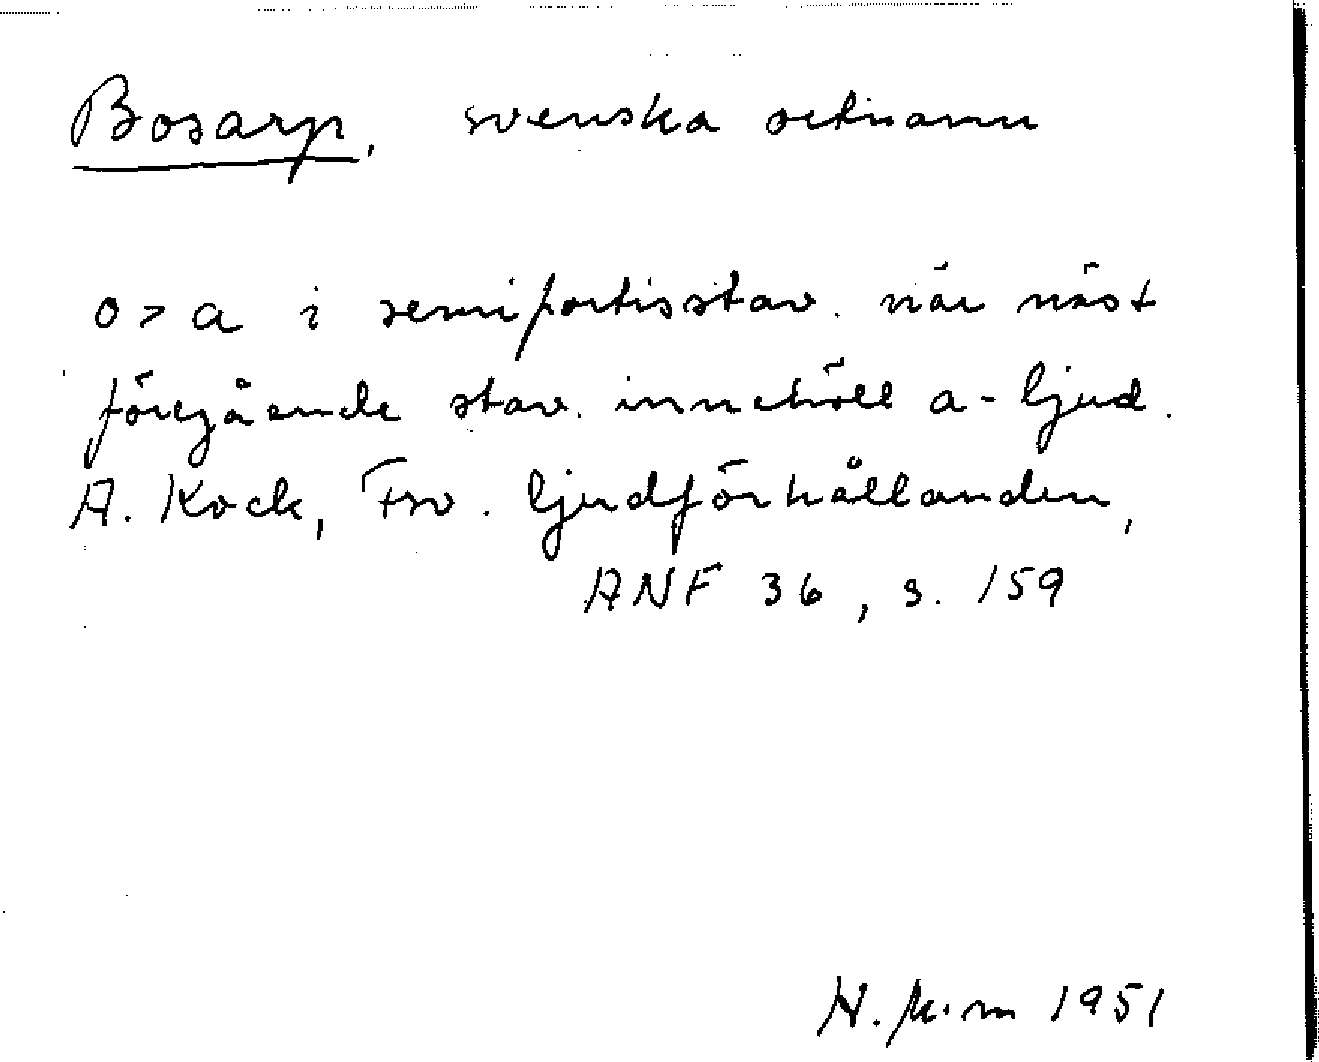 Bosarp, svenska ortnamn
o > a i semifortisstav. när näst
föregående stav. innehöll a-ljud.
A. Kock, Fsv. ljudförhållanden,
ANF 36, s. 159
1951